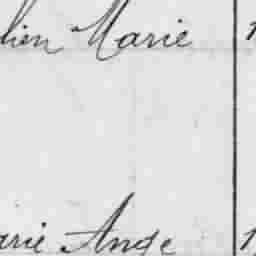 lien Marie 1
arie Ange 1